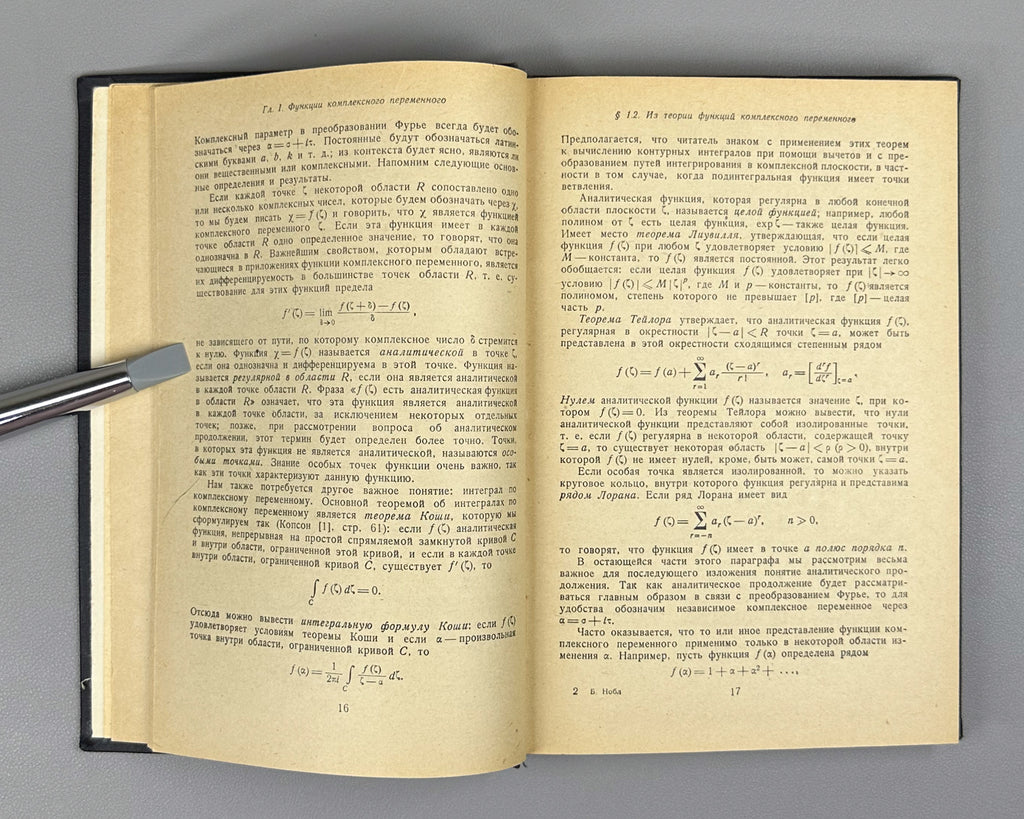 Гл. 1. Функции комплексного переменного
Комплексный параметр в преобразовании Фурье всегда будет обо-
значаться через α = σ + iτ. Постоянные будут обозначаться латин-
скими буквами a, b, k и т. д.; из контекста будет ясно, являются ли
они вещественными или комплексными. Напомним следующие основ-
ные определения и результаты.
Если каждой точке ζ некоторой области R сопоставлено одно
или несколько комплексных чисел, которые будем обозначать через χ,
то мы будем писать χ = f(ζ) и говорить, что χ является функцией
комплексного переменного ζ. Если эта функция имеет в каждой
точке области R одно определенное значение, то говорят, что она
однозначна в R. Важнейшим свойством, которым обладают встре-
чающиеся в приложениях функции комплексного переменного, является
их дифференцируемость в большинстве точек области R, т. е. су-
ществование для этих функций предела
f'(ζ) = lim δ→0 (f(ζ + δ) — f(ζ)) / δ ,
не зависящего от пути, по которому комплексное число δ стремится
к нулю. Функция χ = f(ζ) называется аналитической в точке ζ,
если она однозначна и дифференцируема в этой точке. Функция на-
зывается регулярной в области R, если она является аналитической
в каждой точке области R. Фраза «f(ζ) есть аналитическая функция
в области R» означает, что эта функция является аналитической
в каждой точке области, за исключением некоторых отдельных
точек; позже, при рассмотрении вопроса об аналитическом
продолжении, этот термин будет определен более точно. Точки,
в которых эта функция не является аналитической, называются осо-
быми точками. Знание особых точек функции очень важно, так
как эти точки характеризуют данную функцию.
Нам также потребуется другое важное понятие: интеграл по
комплексному переменному. Основной теоремой об интегралах по
комплексному переменному является теорема Коши, которую мы
сформулируем так (Копсон [1], стр. 61): если f(ζ) аналитическая
функция, непрерывная на простой спрямляемой замкнутой кривой C
и внутри области, ограниченной этой кривой, и если в каждой точке
внутри области, ограниченной кривой C, существует f'(ζ), то
∫C f(ζ) dζ = 0.
Отсюда можно вывести интегральную формулу Коши: если f(ζ)
удовлетворяет условиям теоремы Коши и если α — произвольная
точка внутри области, ограниченной кривой C, то
f(α) = 1/(2πi) ∫C f(ζ)/(ζ — α) dζ.
16
§ 1.2. Из теории функций комплексного переменного
Предполагается, что читатель знаком с применением этих теорем
к вычислению контурных интегралов при помощи вычетов и с пре-
образованием путей интегрирования в комплексной плоскости, в част-
ности в том случае, когда подинтегральная функция имеет точки
ветвления.
Аналитическая функция, которая регулярна в любой конечной
области плоскости ζ, называется целой функцией; например, любой
полином от ζ есть целая функция, exp ζ — также целая функция.
Имеет место теорема Лиувилля, утверждающая, что если целая
функция f(ζ) при любом ζ удовлетворяет условию |f(ζ)| ⩽ M, где
M — константа, то f(ζ) является постоянной. Этот результат легко
обобщается: если целая функция f(ζ) удовлетворяет при |ζ| → ∞
условию |f(ζ)| ⩽ M|ζ|^p, где M и p — константы, то f(ζ) является
полиномом, степень которого не превышает [p], где [p] — целая
часть p.
Теорема Тейлора утверждает, что аналитическая функция f(ζ),
регулярная в окрестности |ζ — a| < R точки ζ = a, может быть
представлена в этой окрестности сходящимся степенным рядом
f(ζ) = f(a) + ∑_{r=1}^{∞} a_r (ζ — a)^r / r! , a_r = [d^r f / dζ^r]_{ζ=a},
Нулем аналитической функции f(ζ) называется значение ζ, при ко-
тором f(ζ) = 0. Из теоремы Тейлора можно вывести, что нули
аналитической функции представляют собой изолированные точки,
т. е. если f(ζ) регулярна в некоторой области, содержащей точку
ζ = a, то существует некоторая область |ζ — a| < ρ (ρ > 0), внутри
которой f(ζ) не имеет нулей, кроме, быть может, самой точки ζ = a.
Если особая точка является изолированной, то можно указать
круговое кольцо, внутри которого функция регулярна и представима
рядом Лорана. Если ряд Лорана имеет вид
f(ζ) = ∑_{r=—n}^{∞} a_r (ζ — a)^r, n ⩾ 0,
то говорят, что функция f(ζ) имеет в точке a полюс порядка n.
В остающейся части этого параграфа мы рассмотрим весьма
важное для последующего изложения понятие аналитического про-
должения. Так как аналитическое продолжение будет рассматри-
ваться главным образом в связи с преобразованием Фурье, то для
удобства обозначим независимое комплексное переменное через
α = σ + iτ.
Часто оказывается, что то или иное представление функции ком-
плексного переменного применимо только в некоторой области из-
менения α. Например, пусть функция f(α) определена рядом
f(α) = 1 + α + α² + ...,
2 Б. Нобл
17